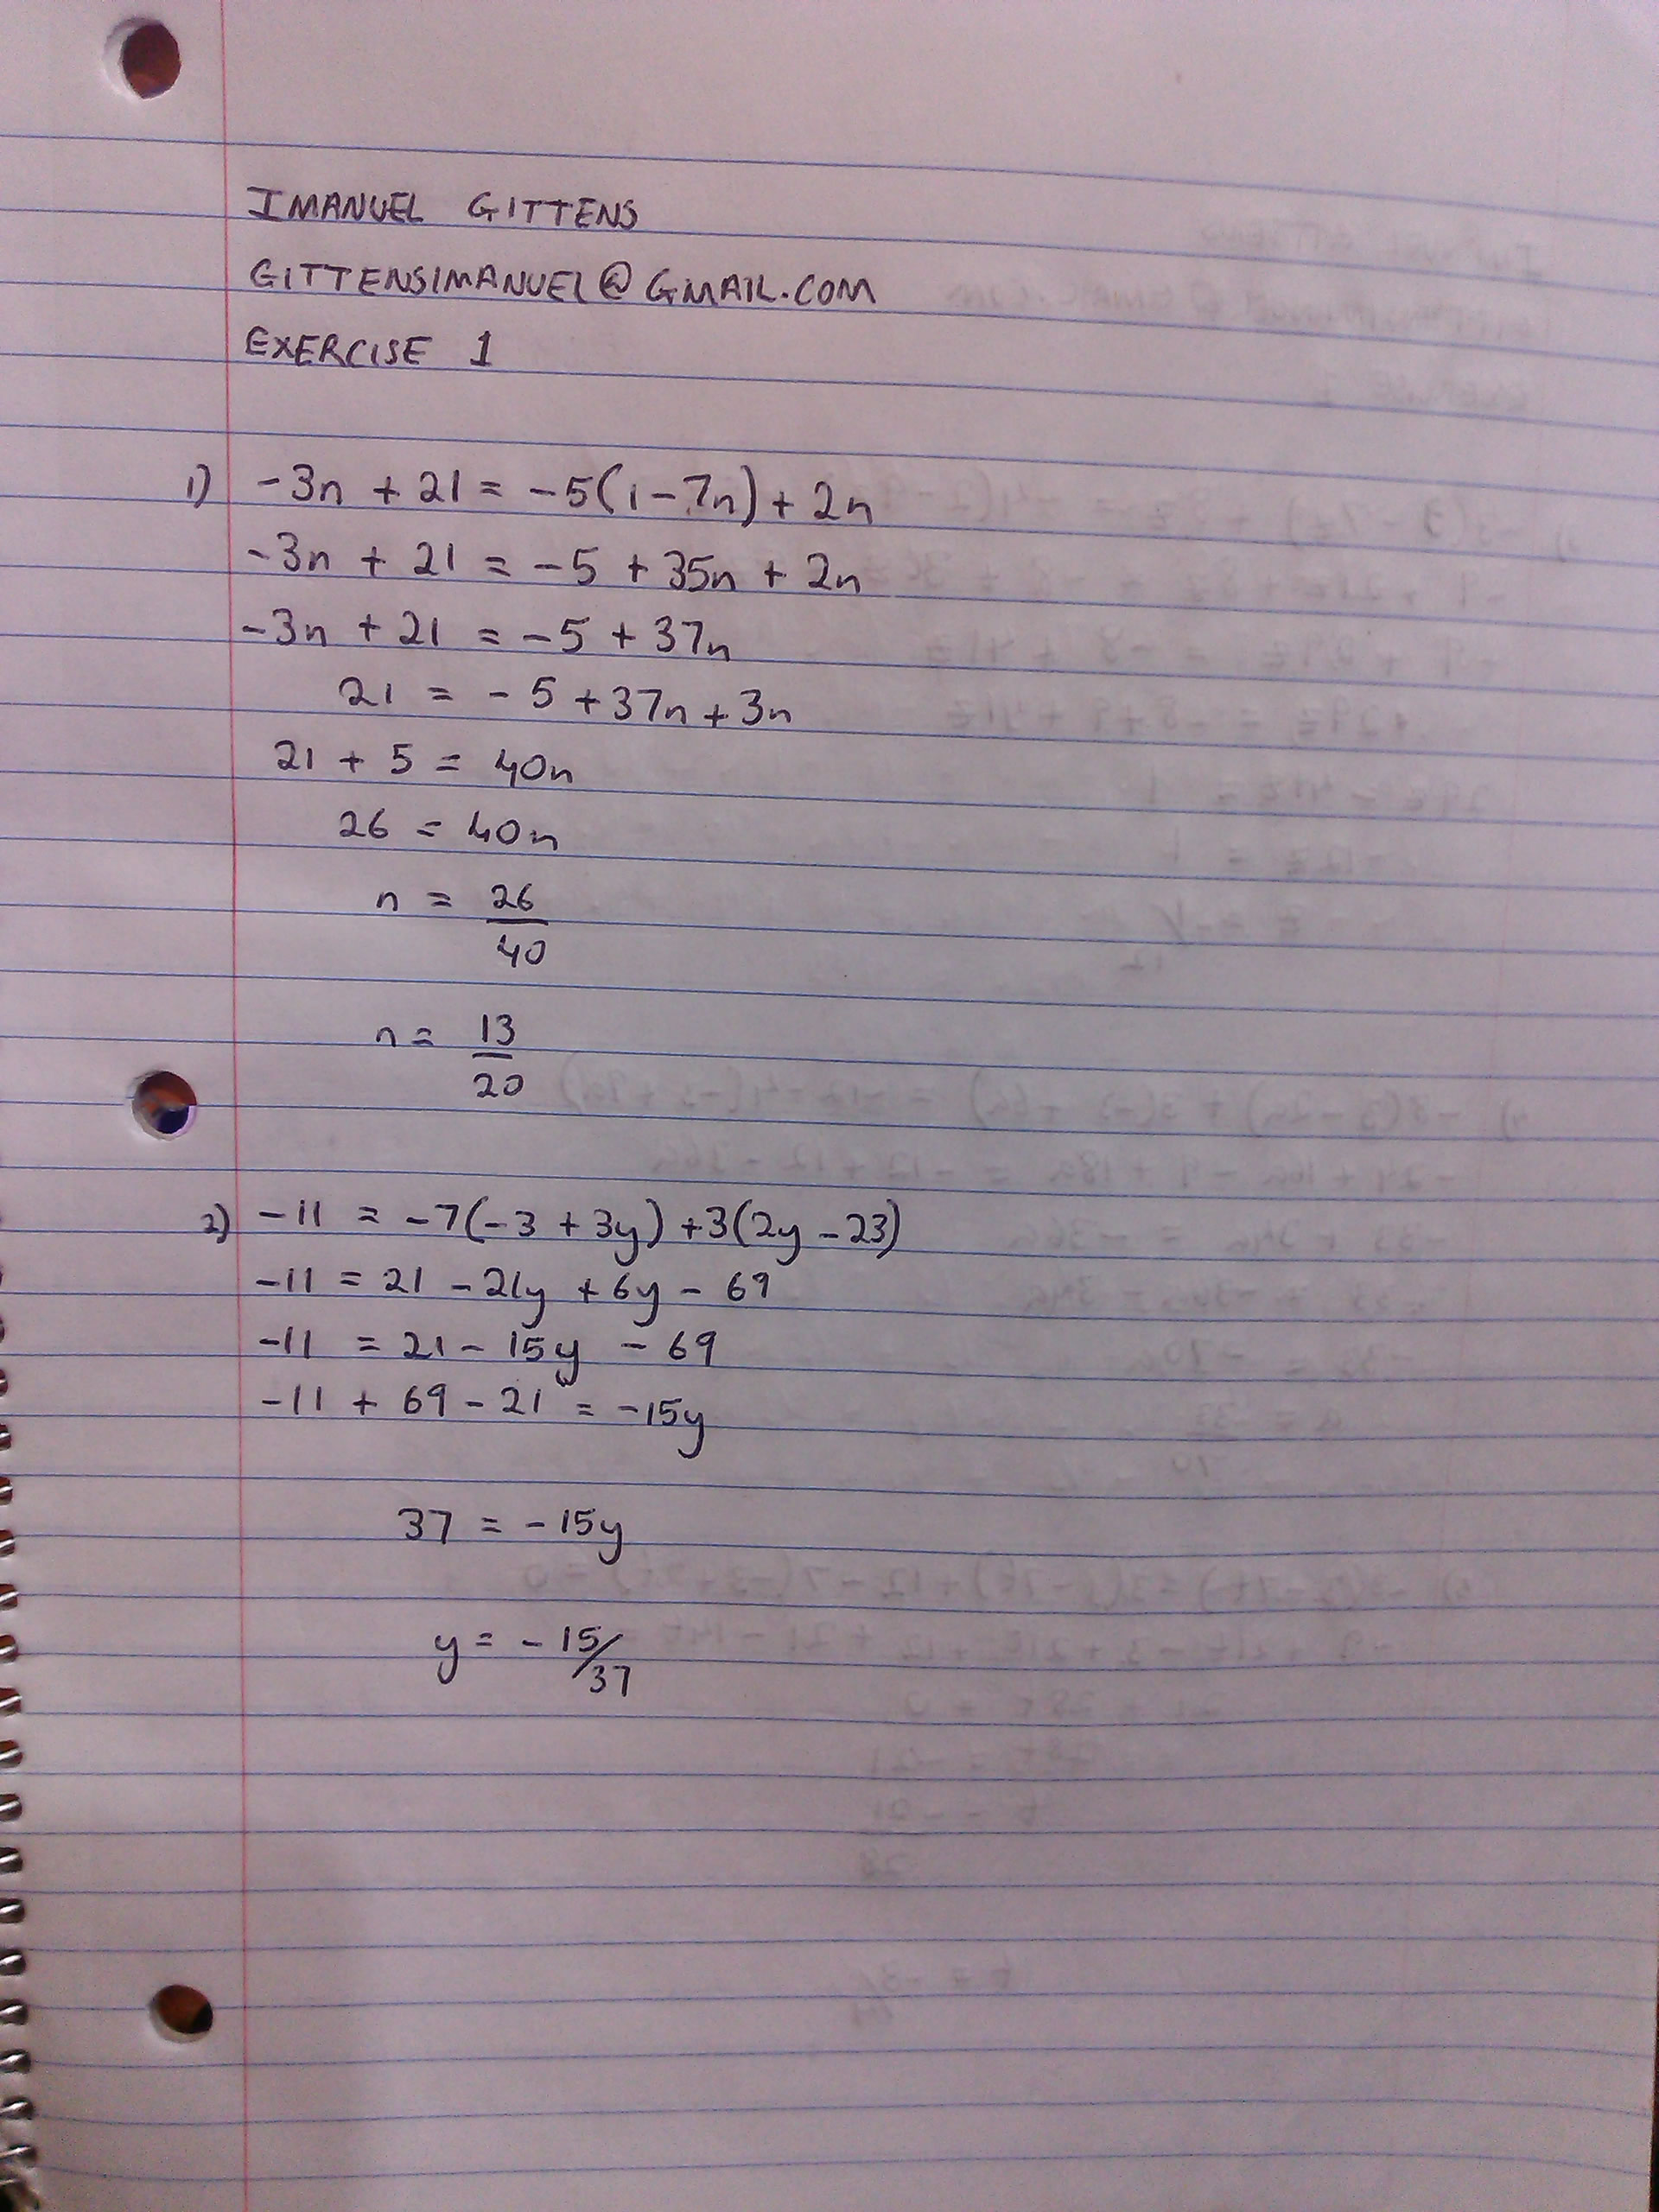 IMANUEL GITTENS
GITTENSIMANUEL@GMAIL.COM
EXERCISE 1
1) -3n + 21 = -5(1-7n) + 2n
-3n + 21 = -5 + 35n + 2n
-3n + 21 = -5 + 37n
21 = -5 + 37n + 3n
21 + 5 = 40n
26 = 40n
n = 26/40
n = 13/20
2) -11 = -7(-3 + 3y) +3(2y - 23)
-11 = 21 - 21y + 6y - 69
-11 = 21 - 15y - 69
-11 + 69 - 21 = -15y
37 = -15y
y = -15/37